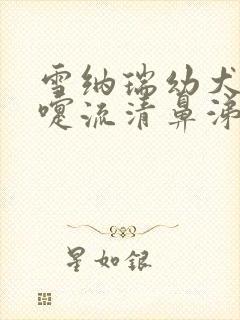 雪纳瑞幼犬
嚏流清鼻涕
星如银